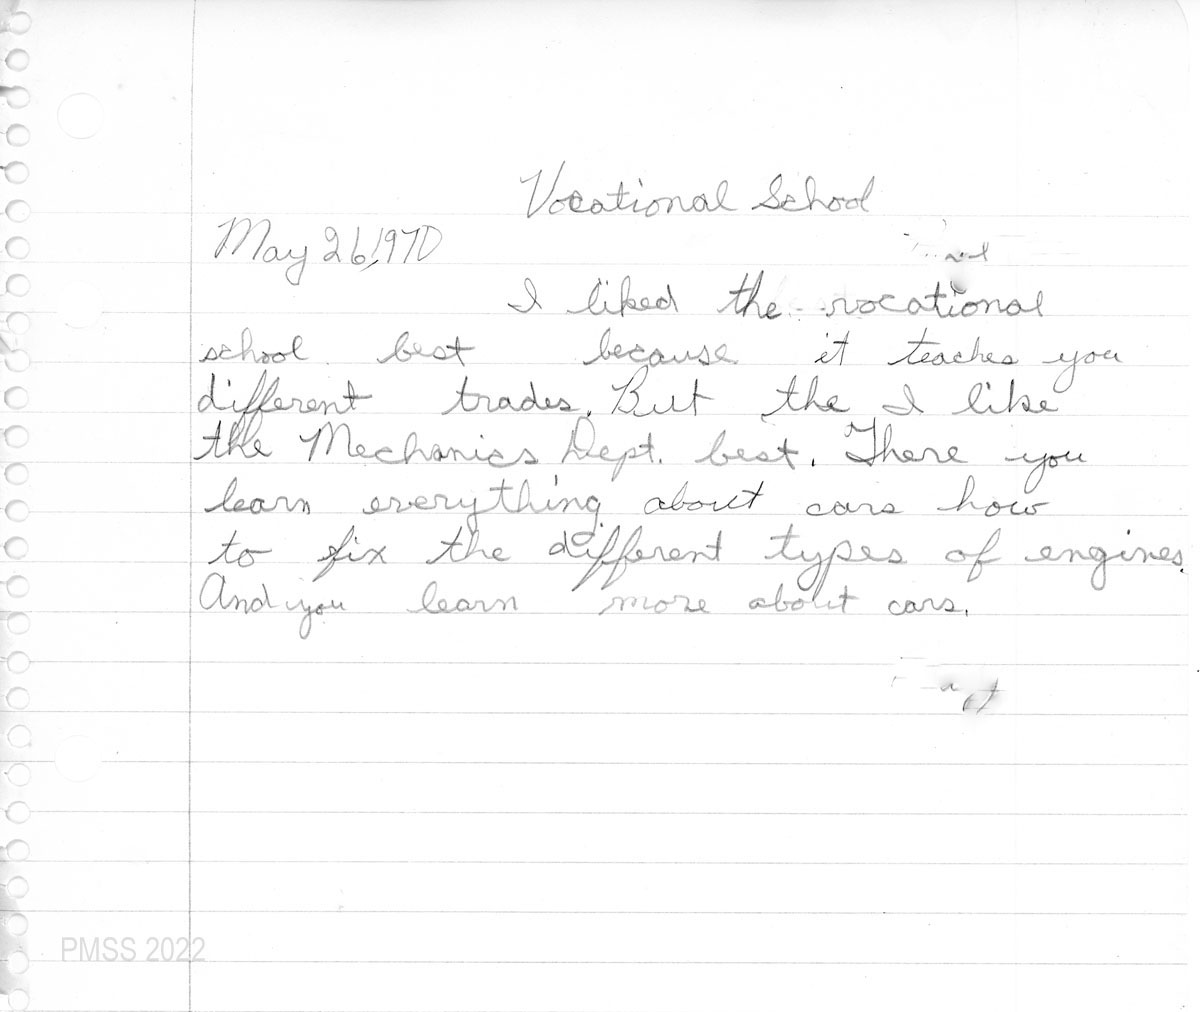 Vocational School
May 26, 1970
I liked the vocational
school best because it teaches you
different trades. But the I like
the Mechanics Dept. best. There you
learn everything about cars how
to fix the different types of engines.
And you learn more about cars.
PMSS 2022